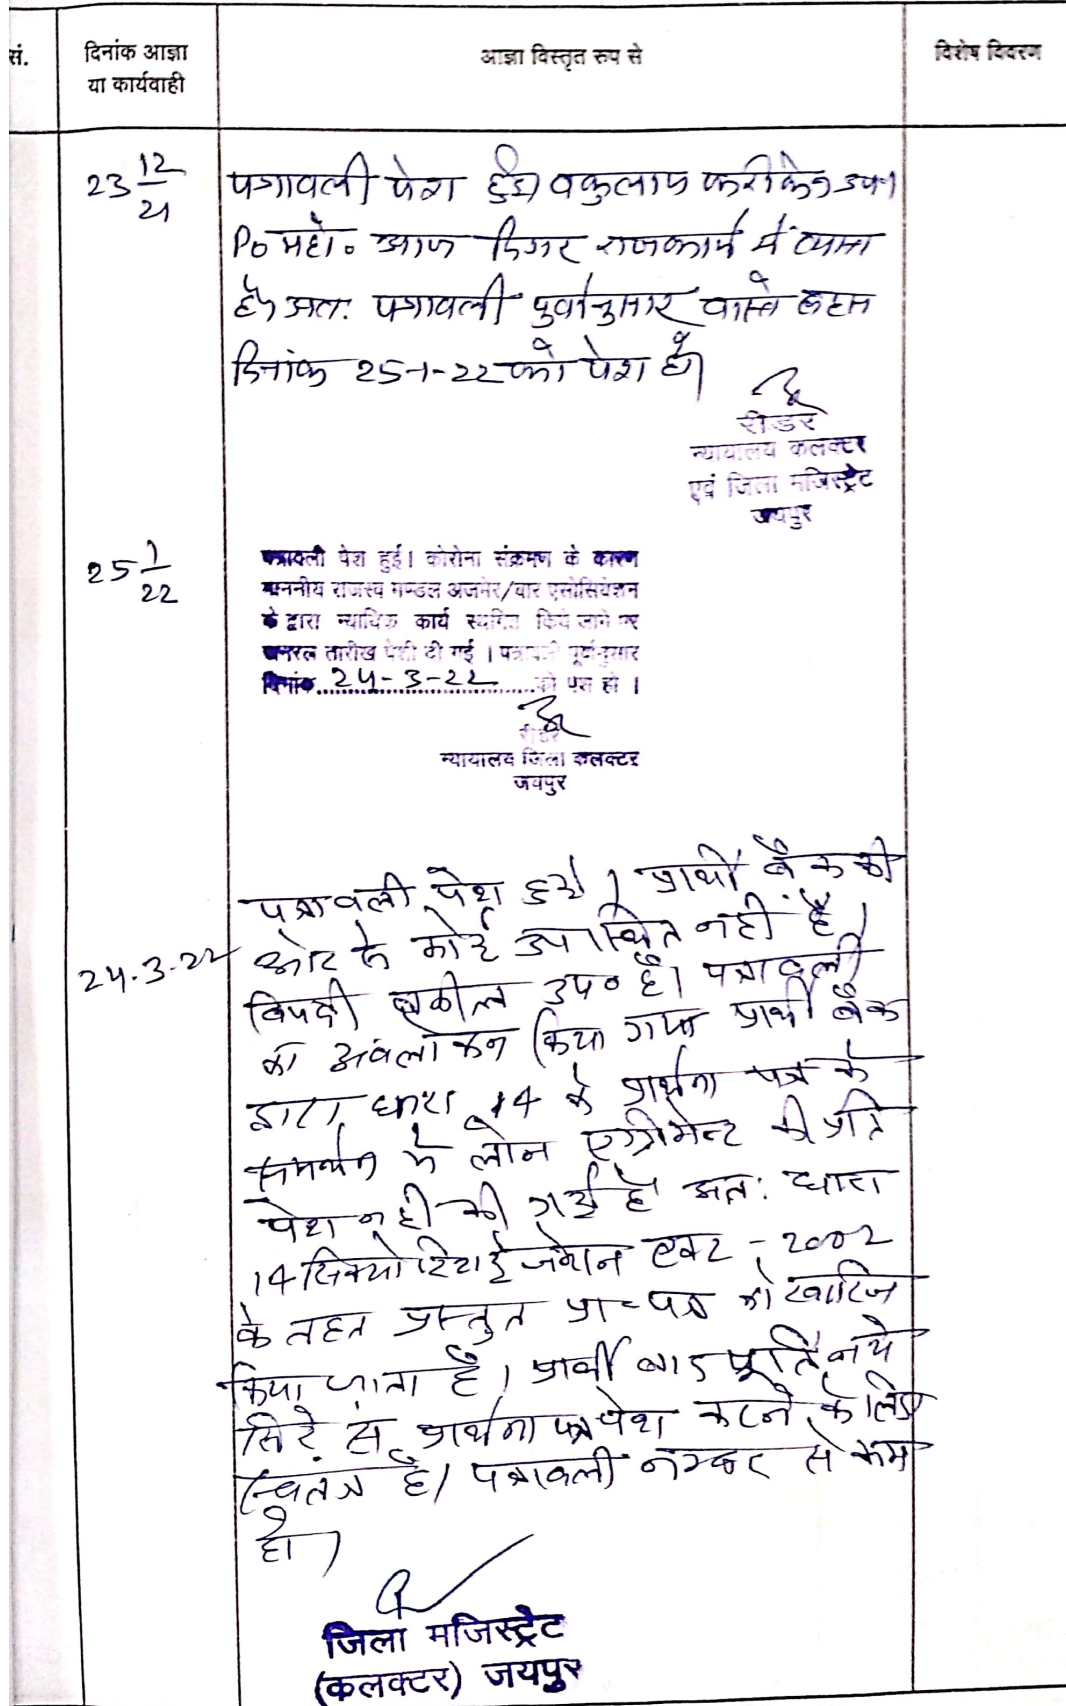 सं.
दिनांक आज्ञा
या कार्यवाही
आज्ञा विस्तृत रुप से
विशेष विवरण
23 12/21
पत्रावली पेश हुई। वकुलाय फरीकेन उप।
P० महो० आज दिगर राजकार्य में व्यस्त
है। अतः पत्रावली पुर्वानुसार वास्ते बहस
दिनांक 25-1-22 को पेश हो।
रीडर
न्यायालय कलक्टर
एवं जिला मजिस्ट्रेट
जयपुर
25 1/22
पत्रावली पेश हुई। कोरोना संक्रमण के कारण
माननीय राजस्व मण्डल अजमेर/बार एसोसियेशन
के द्वारा न्यायिक कार्य स्थगित किये जाने पर
जनरल तारीख पेशी दी गई। पत्रावली पूर्वानुसार
दिनांक 24-3-22 को पेश हो।
रीडर
न्यायालय जिला कलक्टर
जयपुर
24.3.22
पत्रावली पेश हुई। प्रार्थी बैंक की
ओर से कोई उपस्थित नही है।
विपक्षी वकील उप० है। पत्रावली
का अवलोकन किया गया प्रार्थी बैंक
द्वारा धारा 14 के प्रार्थना पत्र के
समर्थन में लोन एग्रीमेन्ट की प्रति
पेश नही की गई है अतः धारा
14 सिक्योरिटाईजेशन एक्ट - 2002
के तहत प्रस्तुत प्रा-पत्र को खारिज
किया जाता है। प्रार्थी बाद पूर्ति नये
सिरे से प्रार्थना पत्र पेश करने के लिए
स्वतंत्र है। पत्रावली नम्बर से कम
हो।
जिला मजिस्ट्रेट
(कलक्टर) जयपुर